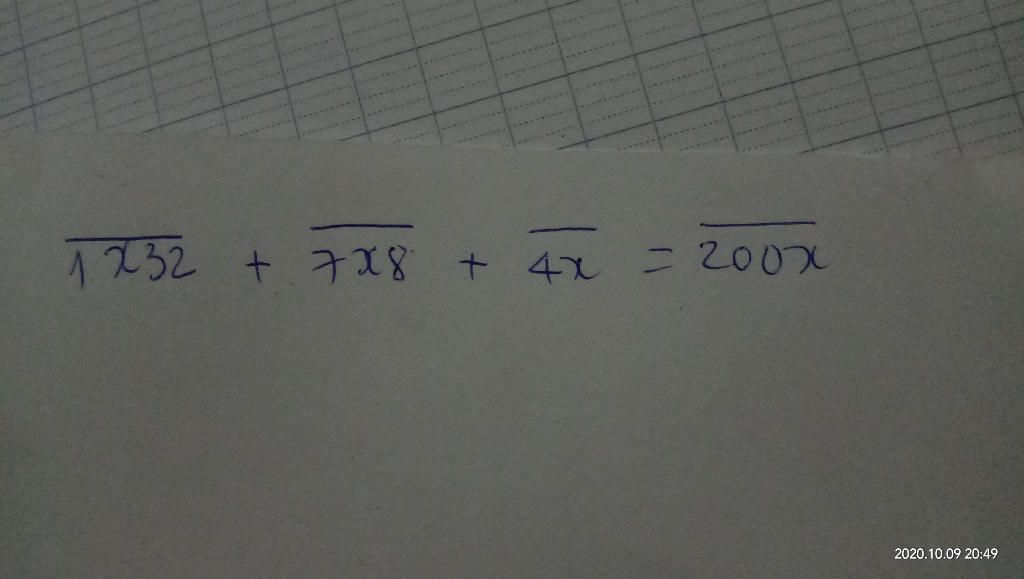 $\overline{1x32} + \overline{7x8} + \overline{4x} = \overline{200x}$
2020.10.09 20:49